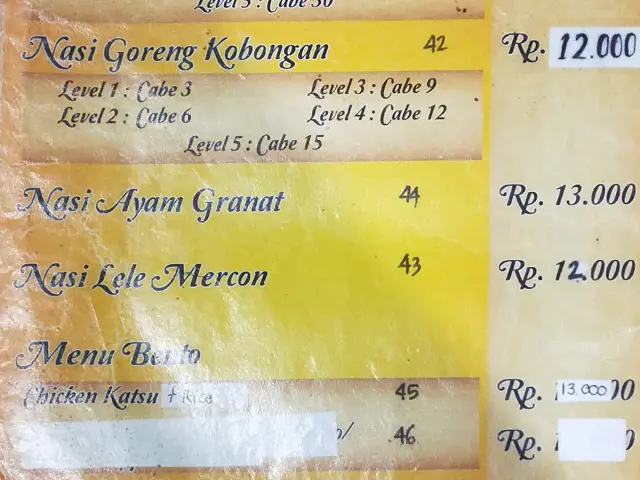 Level 5 : Cabe 30
Nasi Goreng Kobongan 42 Rp. 12.000
Level 1 : Cabe 3 Level 3 : Cabe 9
Level 2 : Cabe 6 Level 4 : Cabe 12
Level 5 : Cabe 15
Nasi Ayam Granat 44 Rp. 13.000
Nasi Lele Mercon 43 Rp. 12.000
Menu Bento
Chicken Katsu + Rice 45 Rp. 13.000
46 Rp.